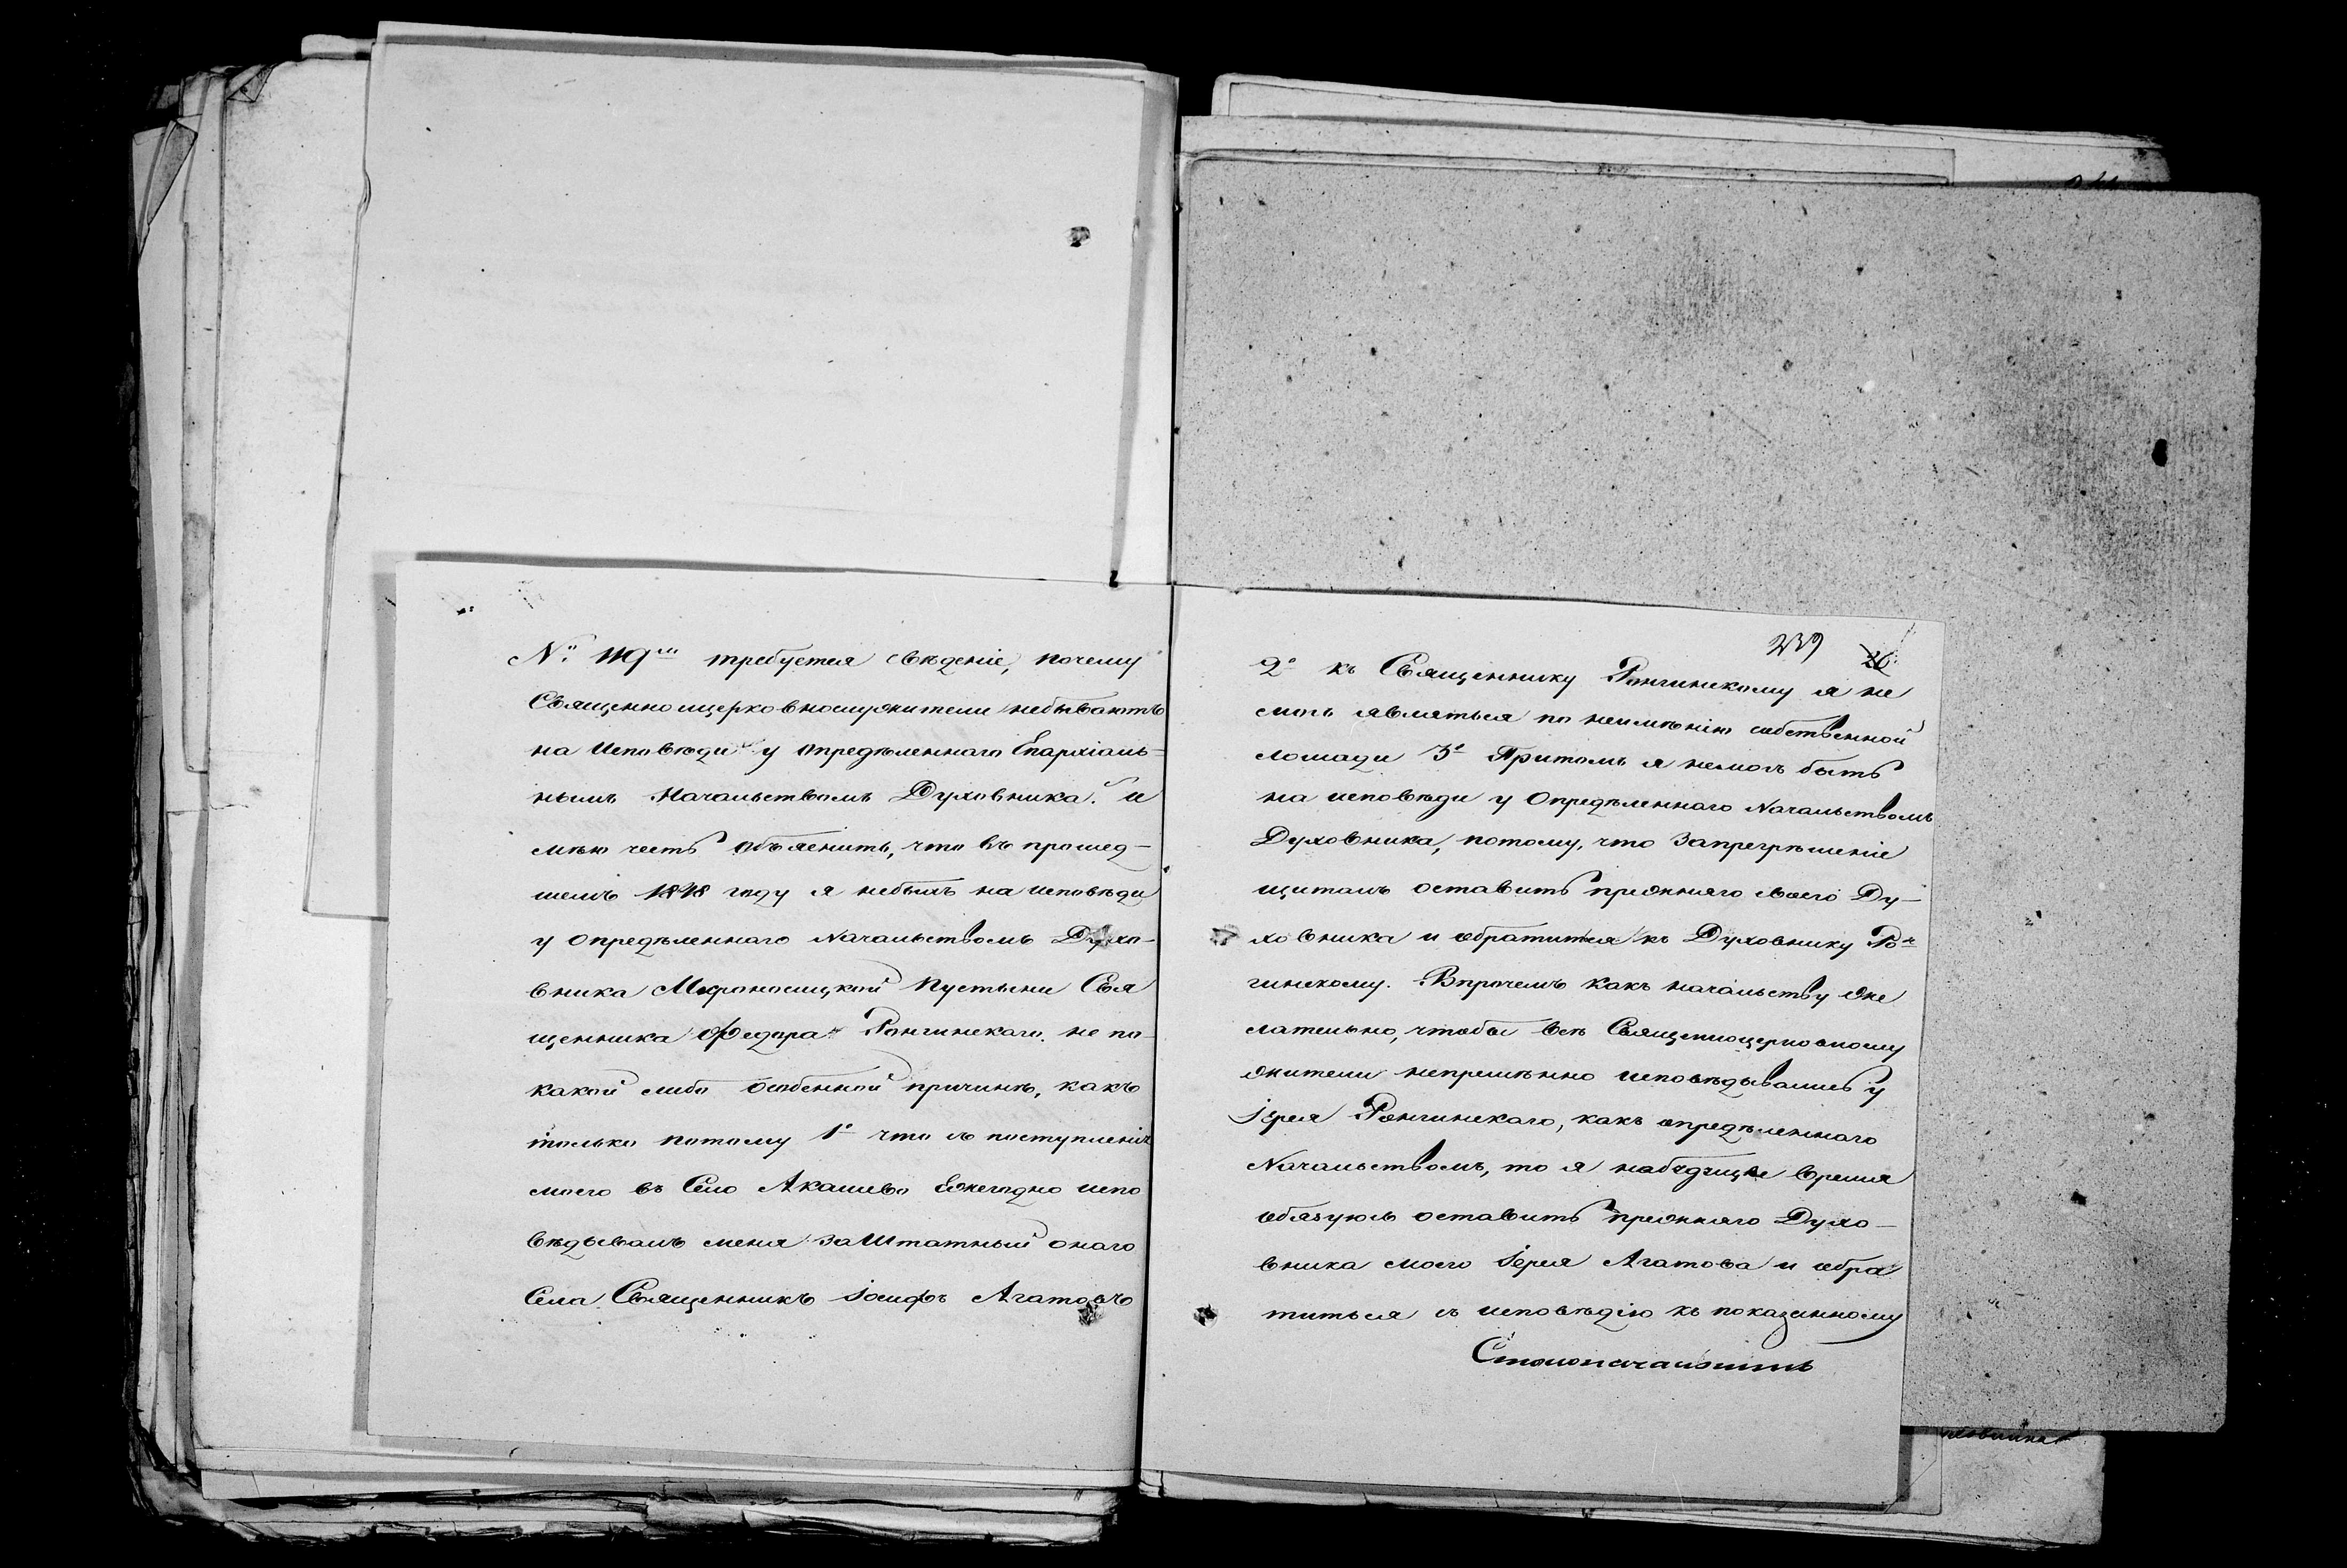 № 119м требуется свѣденіе, почему
Священноицерковнослужители небываютъ
на Исповѣди у опредѣленнаго Епархіаль-
нымъ Начальствомъ Духовника. и
мѣю честь объяснить, что въ прошед-
шемъ 1848 году я небылъ на исповѣди
у опредѣленнаго Начальствомъ Духо-
вника Мѵроносицкой Пустыни Свя
щенника Федора Ронгинскаго не по
какой либо особенной причинѣ, какъ
только потому 1е что со поступленія
моего въ Село Акашево Ежегодно испо
вѣдывалъ меня заШтатный онаго
Села Священникъ Іосифъ Агатовъ
239 26
2е къ Священнику Ронгинскому я не
могъ являться по неимѣнію собственной
лошади 3е Притомъ я немогъ быть
на исповѣди у Опредѣленнаго Начальствомъ
Духовника, потому, что Запрегрѣшеніе
щиталъ оставить прежняго своего Ду-
ховника и обратится къ Духовнику Рон
гинскому. Впрочемъ какъ начальству же
лательно, чтобы всѣ Священноцерковнослу
жители непремѣнно исповѣдывались у
Іерея Ронгинскаго, какъ опредѣленнаго
Начальствомъ, то я набудущее время
обязуюсь оставить прежняго Духо-
вника моего Іерея Агатова и обра
титься съ исповѣдію къ показанному